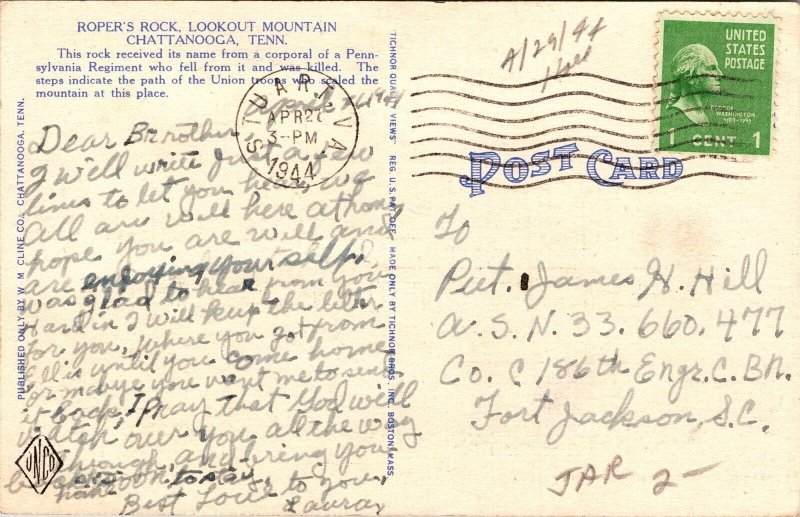 ROPER'S ROCK, LOOKOUT MOUNTAIN
CHATTANOOGA, TENN.
This rock received its name from a corporal of a Penn-
sylvania Regiment who fell from it and was killed. The
steps indicate the path of the Union troops who scaled the
mountain at this place.
PUBLISHED ONLY BY W. M. CLINE CO., CHATTANOOGA, TENN.
April 1944
Dear Brother
I we'll write just a few
lines to let you hear, we
all are well here at home
hope you are well and
are enjoying your self,
was glad to hear from you
and in I will keep the letter
for you, where you got from
until you come home
or maybe you want me to send
it back, I Pray that God will
watch over you all the way
through, and bring you
back home soon to stay,
Best Love to you,
Laura
UNCO
STUART, VA.
APR 27
3-PM
1944
TICHNOR QUALITY VIEWS REG. U.S. PAT. OFF. MADE ONLY BY TICHNOR BROS., INC. BOSTON, MASS.
4/29/44
UNITED
STATES
POSTAGE
GEORGE
WASHINGTON
1789-1797
CENT 1
POST CARD
To
Pvt. James H. Hill
A.S.N. 33.660.477
Co. C 186th Engr. C. Bn.
Fort Jackson, S.C.
JAR 2-